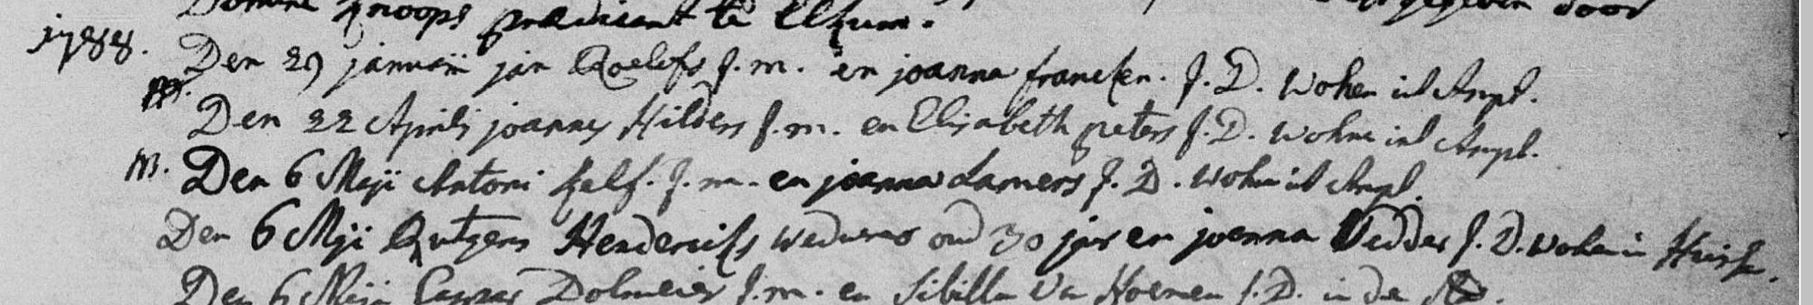 Domine Knoops praedicant te Elkum. gegeven door
1788. Den 29 januarii jan Roelofs J. m. en joanna francken. J. D. Wohen in Ampt.
m. Den 22 Aprili joannes Hilders J. m. en Elisabeth peters J. D. wohn in Ampt.
m. Den 6 Meji Antoni J. m. en joanna Lamers J. D. wohn in Ampt.
Den 6 Meji Rutgers Hendericks weduwe oud 30 jar en joenna Vedder J. D. wohn in
Den 6 Meji Caspar Dolmeier J. m. en Sibilla Van Hoemen J. D. in de